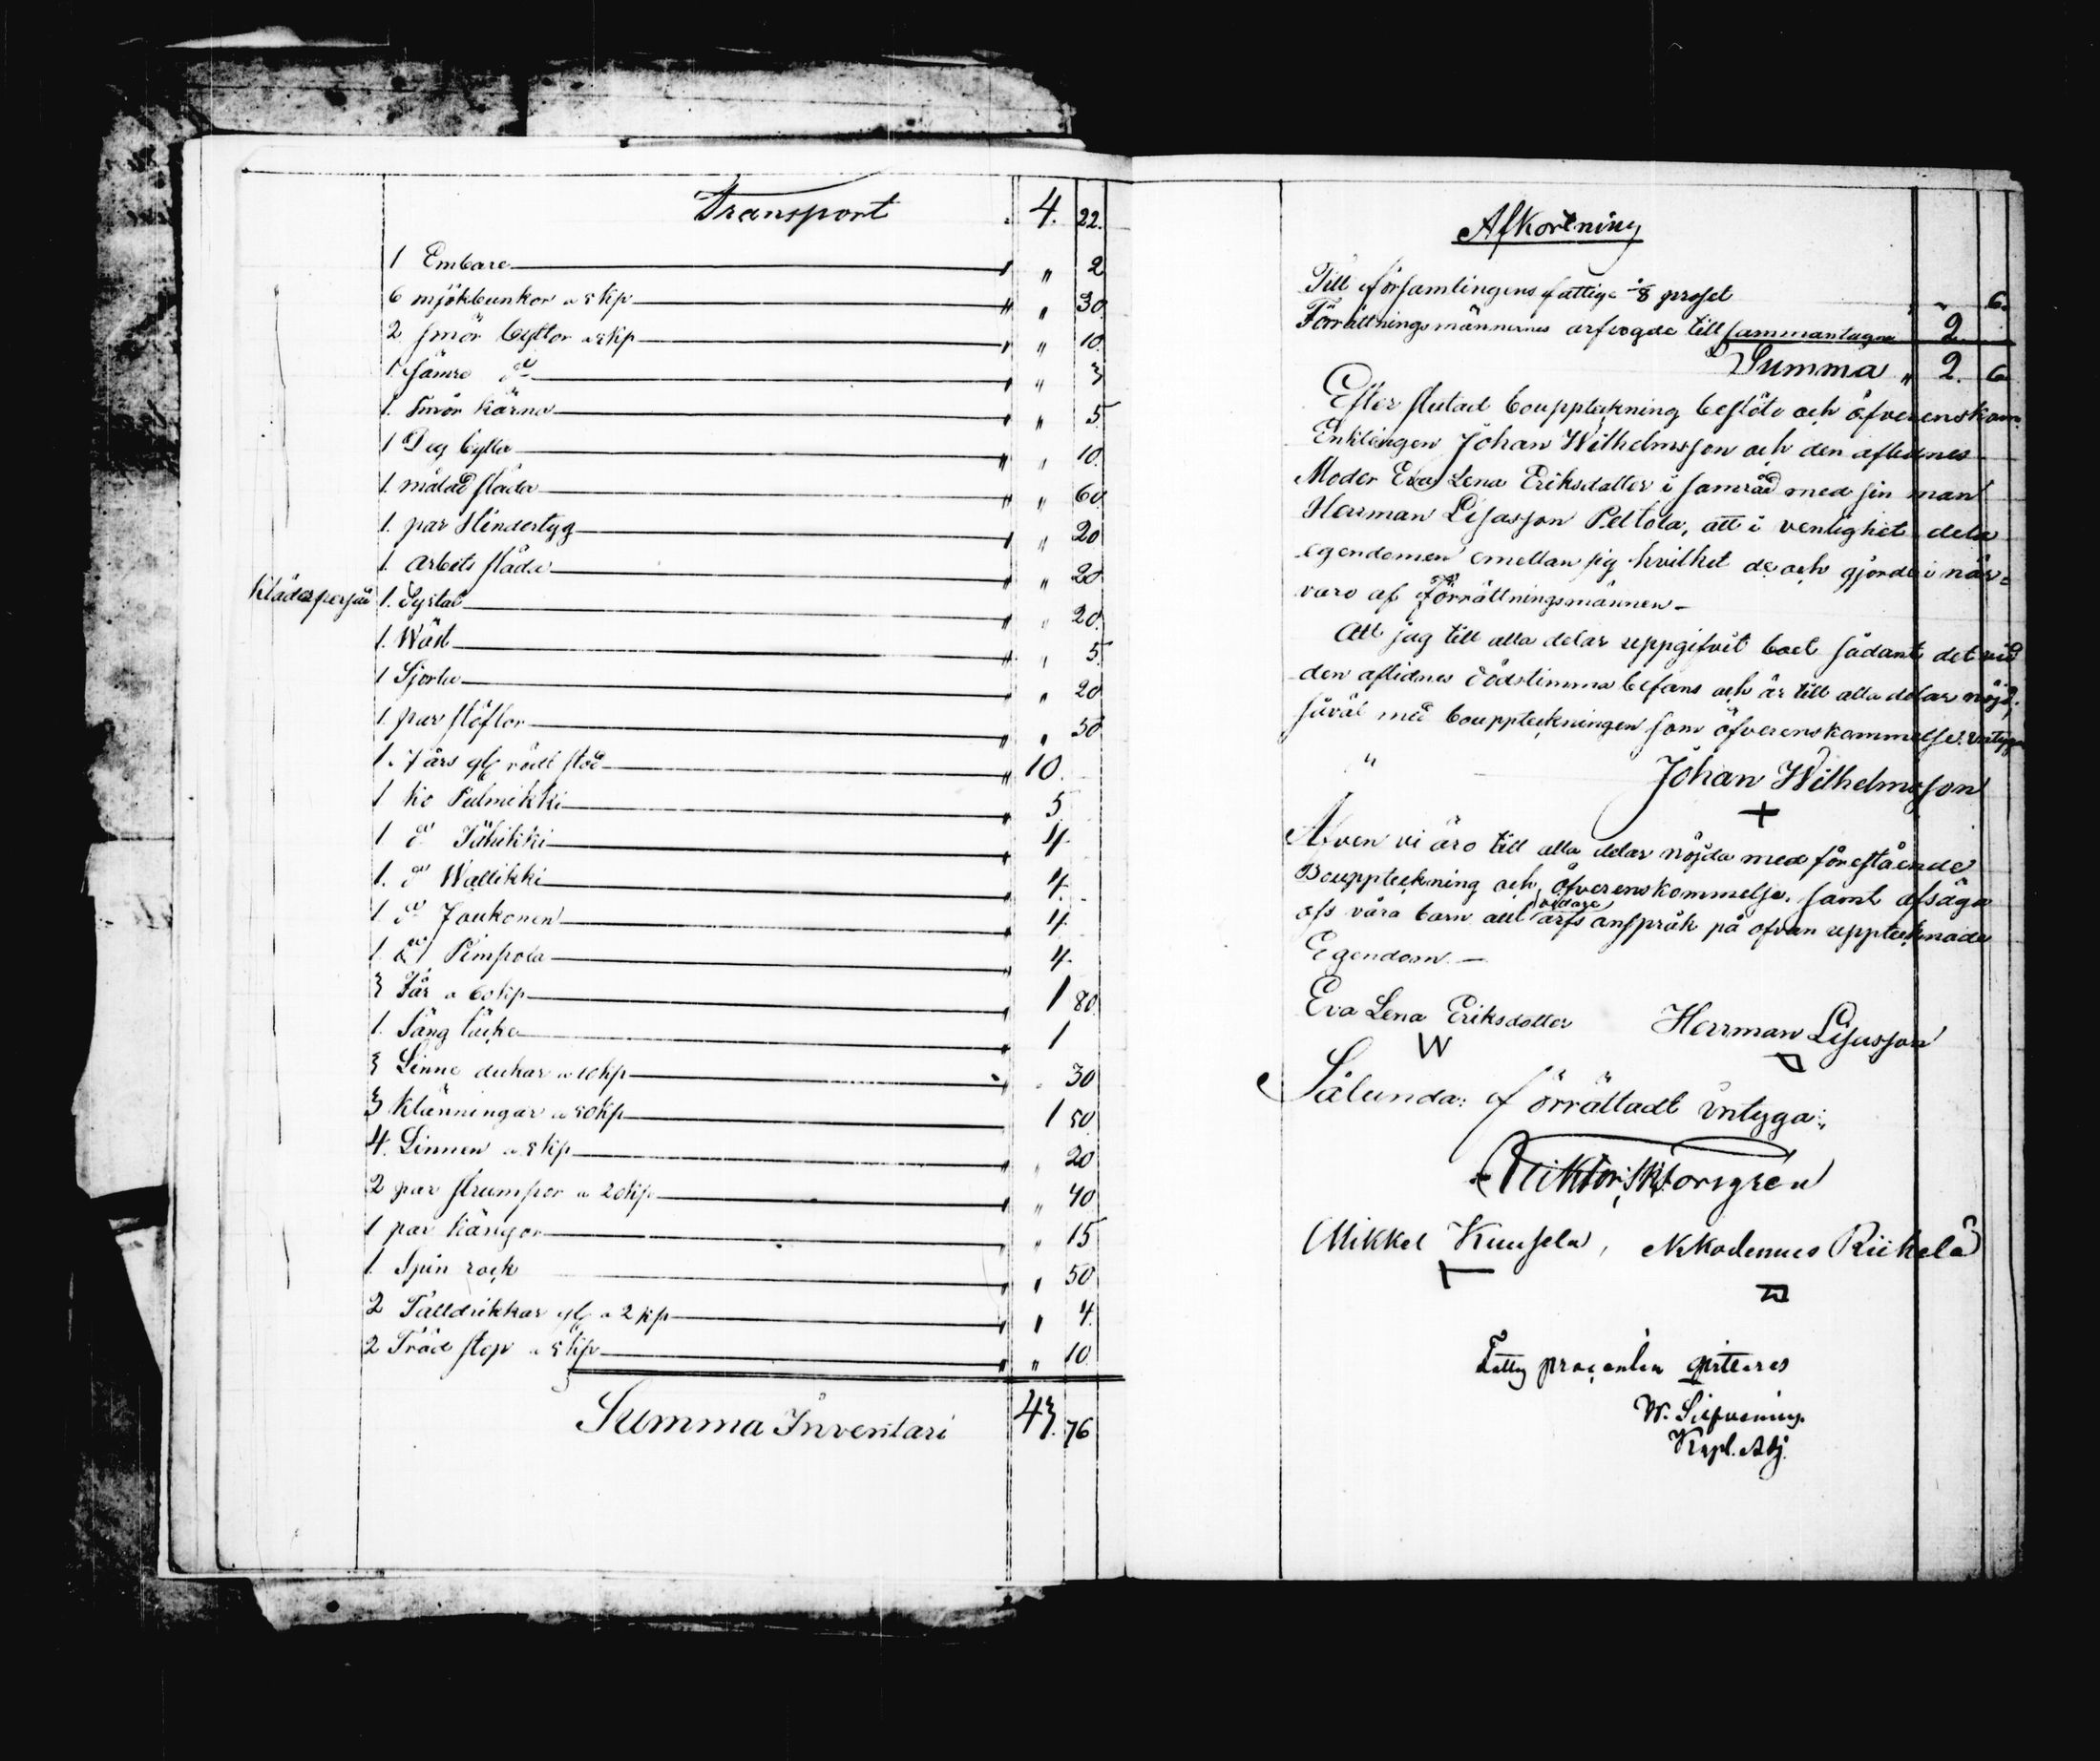 Transport 4. 22.
1 Embare " 2
6 mjökbunkor a 5 kp " 30
2 smör byttor a 5 kp " 10.
1. sämre do " 3
1. Smör kärna " 5
1 Deg bytta " 10.
1. målad släda " 60
1. par Hindertyg " 20
1. arbets släda " 20
Kläderpersed 1. 20.
1. Wäst " 5
1 Sjorta " 20
1. par stöflor " 50
1. 7 års glg rödt stod 10.
1 ko Pulmikki 5
1 do Tähikki 4
1. do Wallikki 4.
1. do Joukonen 4
1. do Pimpola 4
3 Får a 60 kp 1 80.
1. Säng täcke 1
3 Linne dukar a 10 kp " 30
3 Klänningar a 50 kp 1 50
4. Linnen a 5 kp " 20
2 par strumpor a 20 kp " 40
1 par kängor " 15
1. Spin rock " 50
2 Talldrikkar glg a 2 kp " 4.
2 Träd stop a 5 kp " 10
Summa Inventari 43. 76
Afkortning
Till församlingens fattige 1/8 proset " 6.
Förrättningsmännernes arfvogde till sammantagne 2.
Summa " 2. 6
Efter slutad bouppteckning beslöto och öfverenskom
Enklingen Johan Wilhelmsson och den aflidnes
Moder Eva Lena Eriksdotter i samråd med sin man
Herrman Lisasson Peltola, att i venlighet dela
egendomen emellan sig hvilket de och gjorde i när=
varo af förrättningsmännen —
Att jag till alla delar uppgifvit boet sådant det vid
den aflidnes dödstimma befans och är till alla delar nöjd,
såväl med bouppteckningen som öfverenskommelse. Intyga
" Johan Wilhelmsson
+
Äfven vi äro till alla delar nöjda med förestående
Bouppteckning och öfverenskommelse. samt afsäga
oss våra barn allt vidare arfs anspråk på ofvan upptecknade
Egendom. —
Eva Lena Eriksdotter Herrman Lisasson
W
Sålunda: förrättadt intyga:
Mikkel Kuusela, Nikodemus Riikelä
Fattig procenten qvitteras
W.
Kapl. Adj.